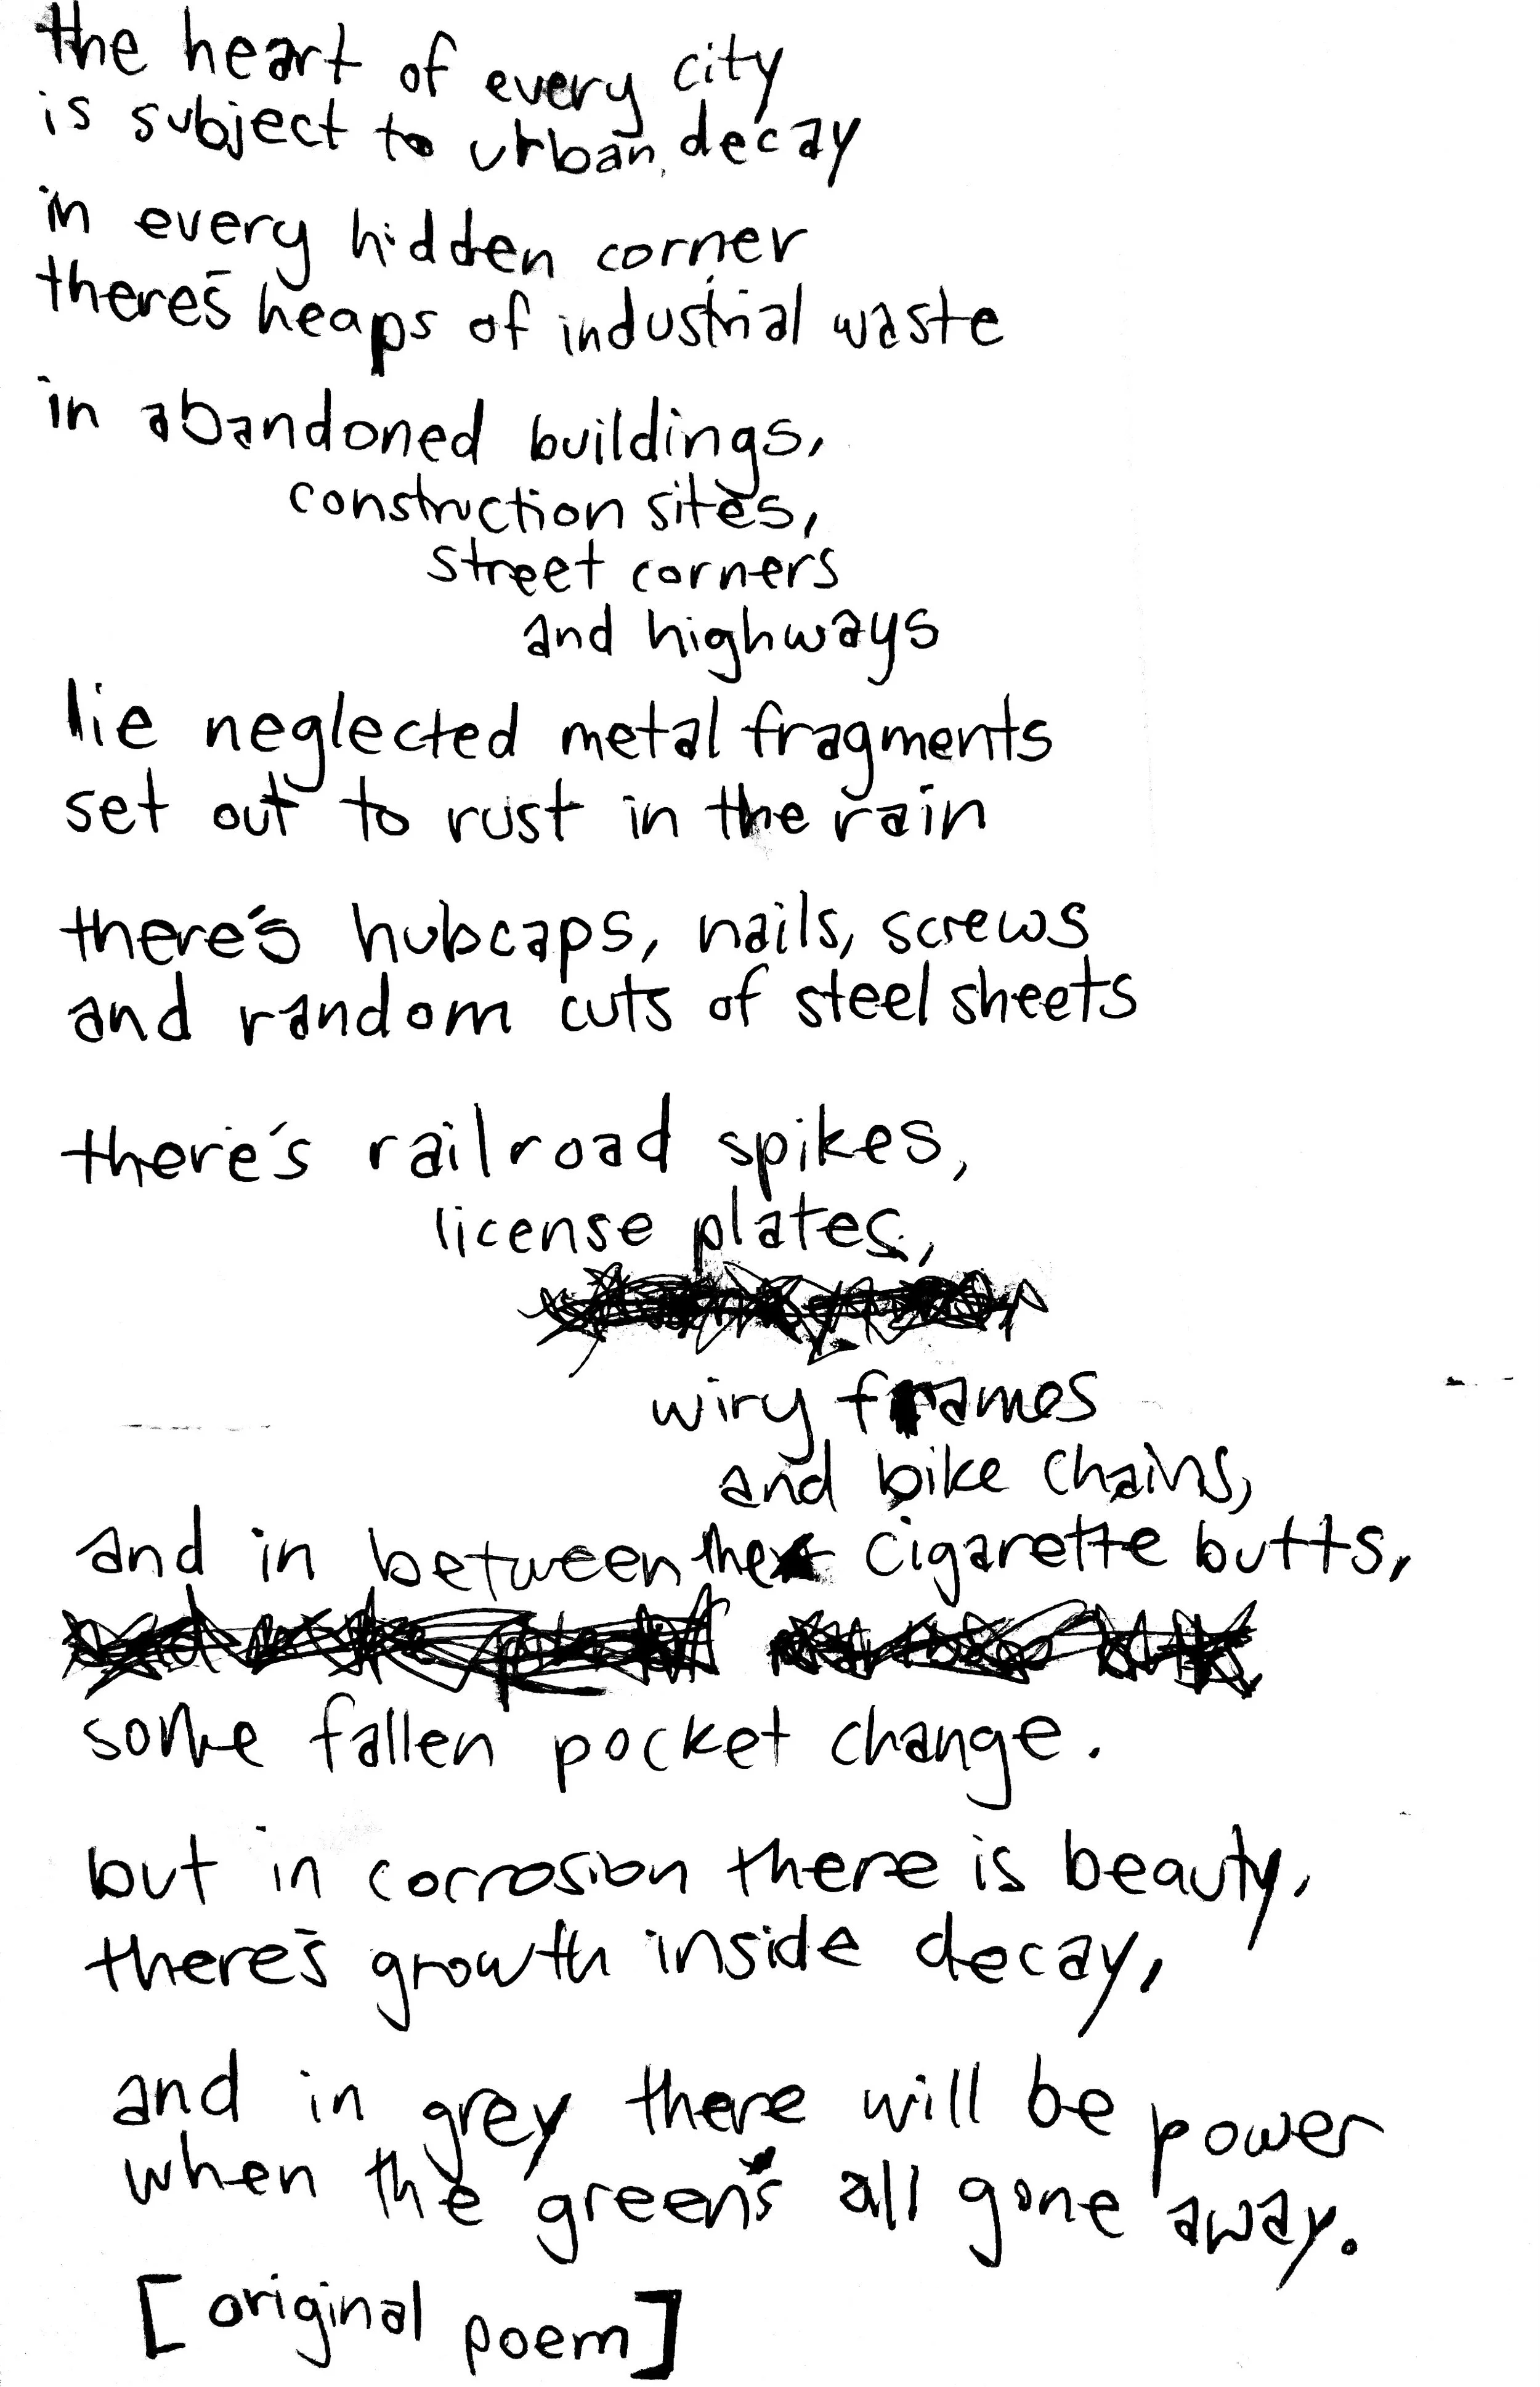 the heart of every city
is subject to urban decay
in every hidden corner
there's heaps of industrial waste
in abandoned buildings,
construction sites,
street corners
and highways
lie neglected metal fragments
set out to rust in the rain
there's hubcaps, nails, screws
and random cuts of steel sheets
there's railroad spikes,
license plates,
wiry frames
and bike chains,
and in between the cigarette butts,
some fallen pocket change.
but in corrosion there is beauty,
there's growth inside decay,
and in grey there will be power
when the green's all gone away.
[original poem]